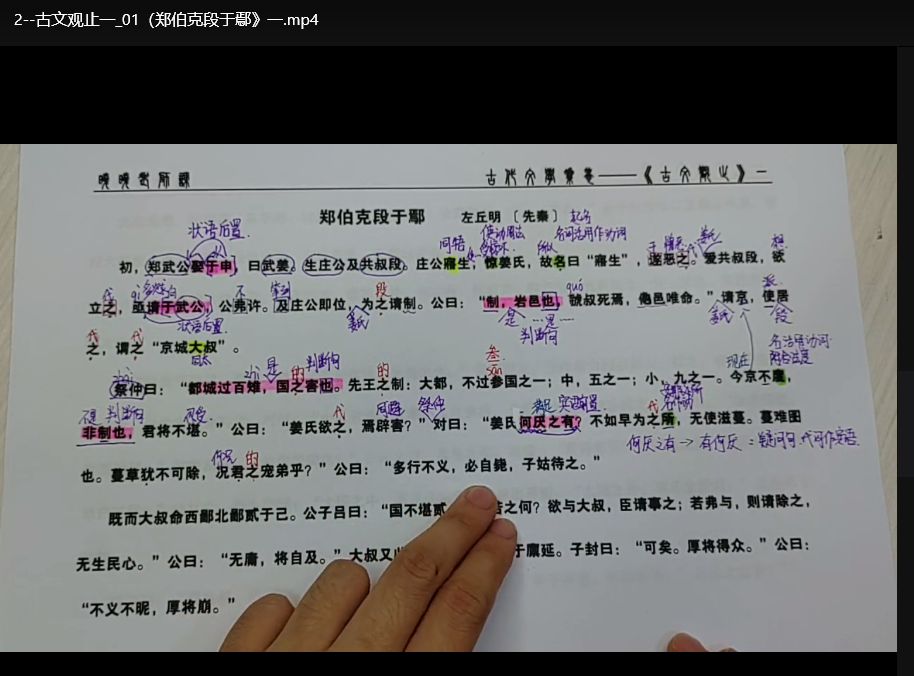 2--古文观止一_01（郑伯克段于鄢》一.mp4
晚晚老师课
古代文学常考——《古文观止》一
郑伯克段于鄢 左丘明 〔先秦〕
状语后置
同牾 使动用法 名词活用作动词
初，郑武公娶于申，曰武姜。生庄公及共叔段。庄公寤生，惊姜氏，故名曰“寤生”，遂恶之。爱共叔段，欲
段 guó
立之，亟请于武公，公弗许。及庄公即位，为之请制。公曰：“制，岩邑也，虢叔死焉，佗邑唯命。”请京，使居
状语后置 姜氏 是 判断句 姜氏 段
之，谓之“京城大叔”。
是 判断句 的 的 叁 现在
祭仲曰：“都城过百雉，国之害也。先王之制：大都，不过参国之一；中，五之一；小，九之一。今京不度，
不是 判断句 代 祭仲 宾语前置 代
非制也，君将不堪。”公曰：“姜氏欲之，焉辟害？”对曰：“姜氏何厌之有？不如早为之所，无使滋蔓。蔓难图
何厌之有→有何厌
的
也。蔓草犹不可除，况君之宠弟乎？”公曰：“多行不义，必自毙，子姑待之。”
既而大叔命西鄙北鄙贰于己。公子吕曰：“国不堪贰 之何？欲与大叔，臣请事之；若弗与，则请除之，
无生民心。”公曰：“无庸，将自及。”大叔又 于廪延。子封曰：“可矣。厚将得众。”公曰：
“不义不昵，厚将崩。”